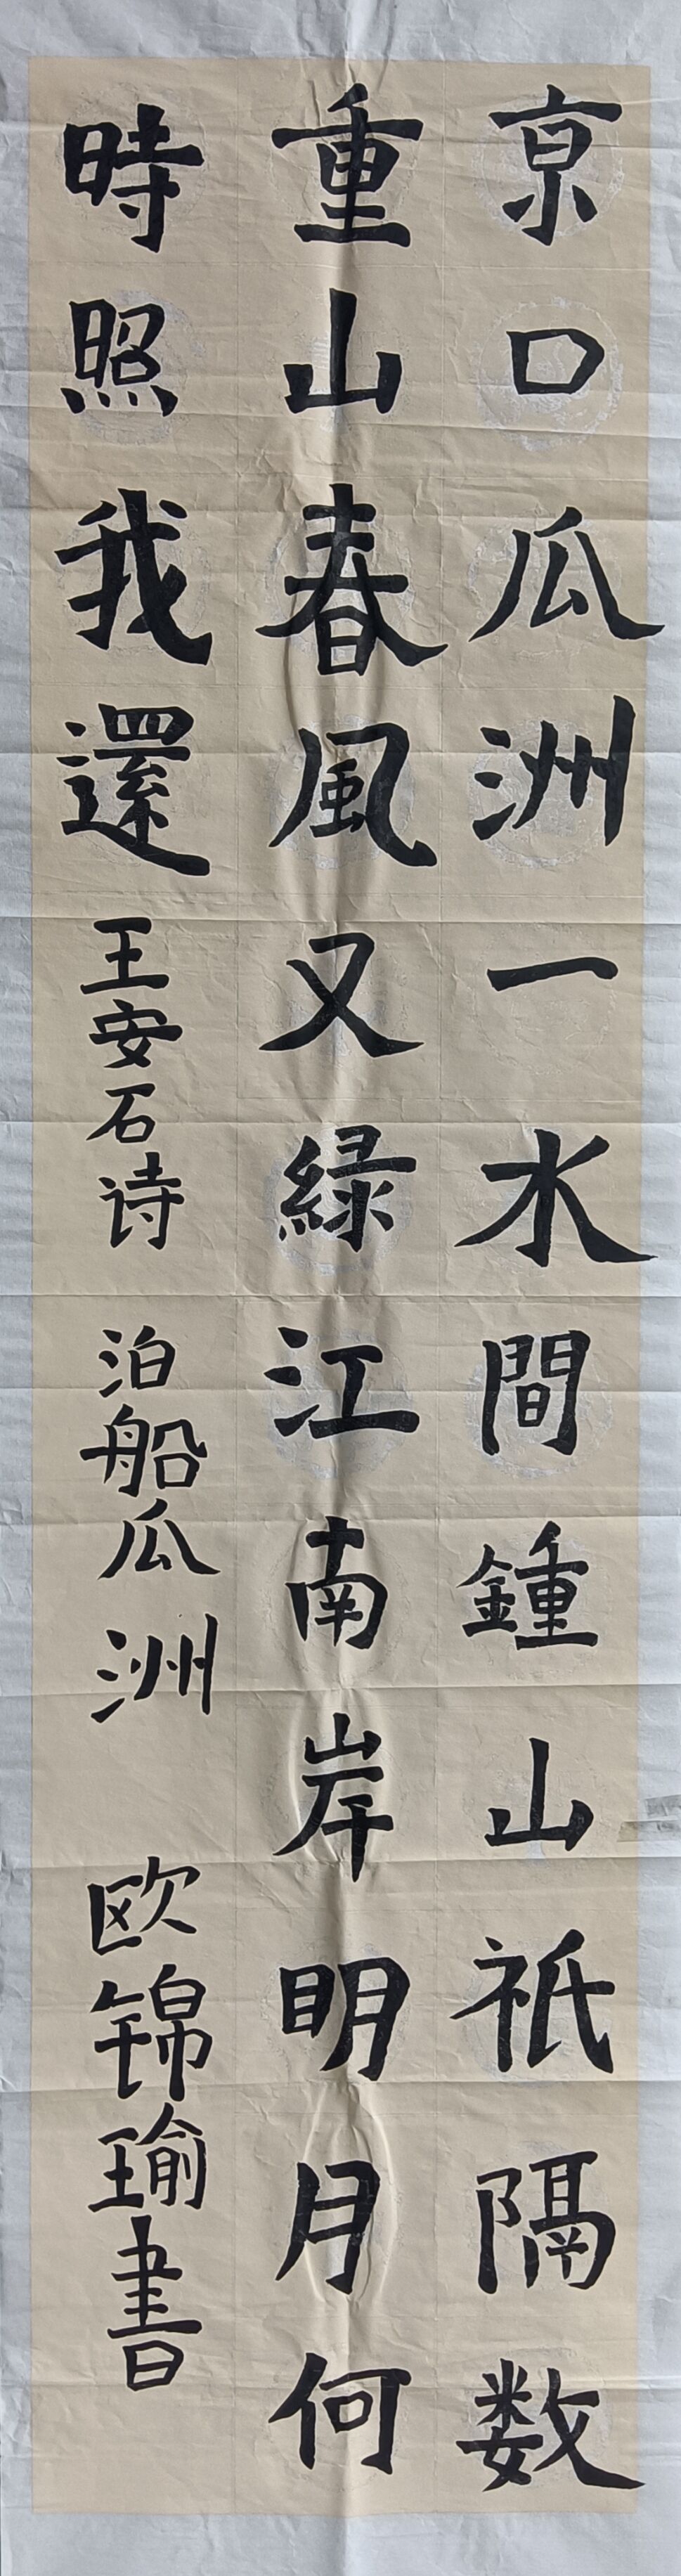 京口瓜洲一水間鍾山祇隔数
重山春風又緑江南岸明月何
時照我還
王安石诗 泊船瓜洲 欧锦瑜書